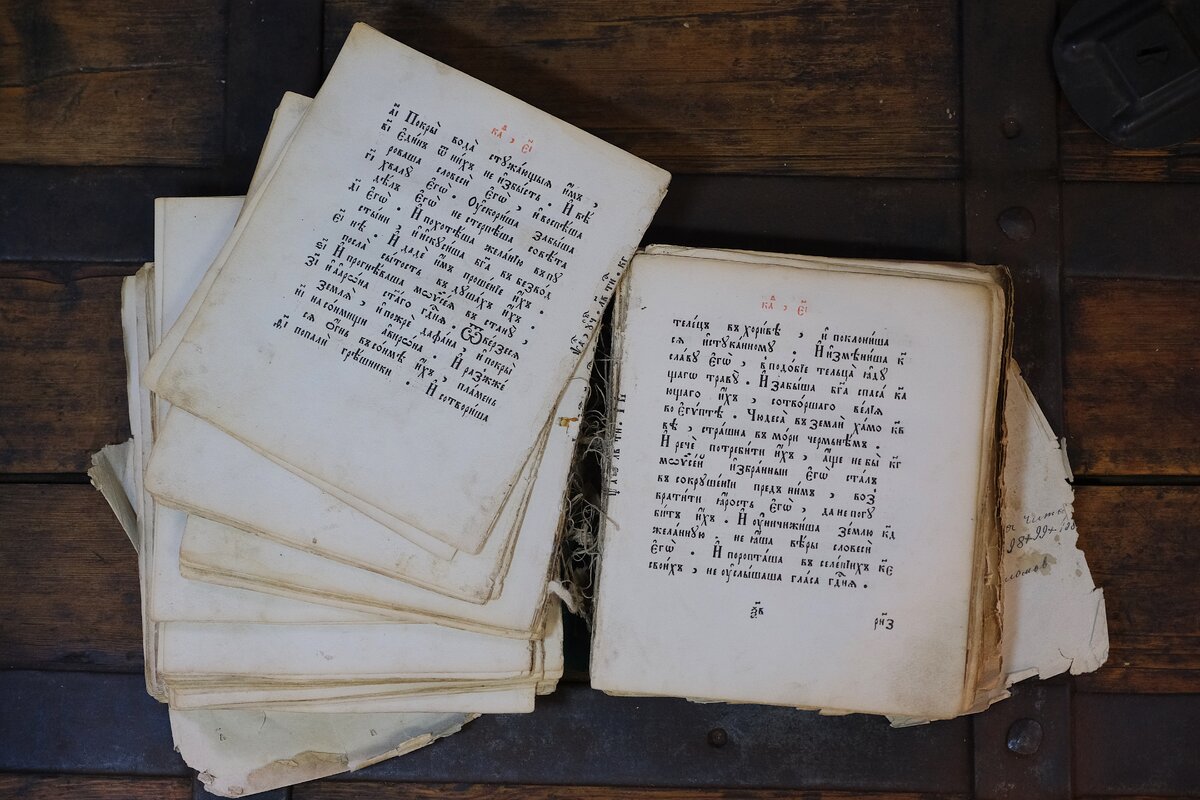 к҃а , є҃і
а҃і Покры̀ вода̀ стꙋжа́ющыѧ и҆̀мъ ,
в҃і є҆ди́нъ ѿ ни́хъ не и҆збы́сть . И҆ вѣ́
роваша словесѝ є҆гѡ̀ , и҆ воспѣ́ша
г҃і хвалꙋ̀ є҆гѡ̀ . Оу҆скори́ша забы́ша
дѣ́лъ є҆гѡ̀ не стерпѣ́ша совѣ́та
д҃і є҆гѡ̀ . И҆ похотѣ́ша жела́нїю въ пꙋ
сты́ни , и҆ и҆скꙋси́ша бг҃а въ безвод
є҃і нѣ . И҆ дадѐ и҆̀мъ проше́нїе и҆́хъ .
посла̀ сы́тость въ дꙋ́шахъ и҆́хъ .
ѕ҃і И҆ прогнѣ́ваша мѡѷсе́ѧ въ станꙋ̀ ,
з҃і и҆ а҆арѡ́на ст҃а́го гдⷭ҇нѧ . Ѿве́рзесѧ
землѧ̀ , и҆ пожрѐ даѳа́на , и҆ покры̀
и҃і на со́нмищи а҆вирѡ́на . И҆ разжже́
сѧ ѻ҆́гнь въ со́нмѣ и҆́хъ , пла́мень
ѳ҃і попалѝ грѣ́шники . И҆ сотвори́ша
к҃а , є҃і
теле́цъ въ хори́вѣ , и҆ поклони́ша
сѧ и҆стꙋка́нномꙋ . И҆ и҆змѣни́ша к҃
сла́вꙋ є҆гѡ̀ , в подо́бїе тельца̀ ꙗ҆дꙋ́
щагѡ травꙋ̀ . И҆ забы́ша бг҃а спаса́ ка
ющаго и҆́хъ , сотво́ршаго ве́лїѧ
во є҆гѵ́птѣ . Чꙋдеса̀ въ землѝ ха́мо кв
вѣ , стра́шна въ мо́ри чермнѣ́мъ .
И҆ речѐ потреби́ти и҆́хъ , а҆́ще не бы̀ кг
мѡѷсе́й и҆збра́нный є҆гѡ̀ ста́лъ
въ сокрꙋше́нїи предъ ни́мъ , воз
врати́ти ꙗ҆́рость є҆гѡ̀ , да не погꙋ
би́тъ и҆́хъ . И҆ оу҆ничижи́ша зе́млю кд
жела́ннꙋю . не ꙗ҆́ша вѣ́ры словесѝ
є҆гѡ̀ . И҆ поропта́ша въ селе́нїихъ кє
свои́хъ , не оу҆слы́шаша гла́са гдⷭ҇нѧ .
рн҃з